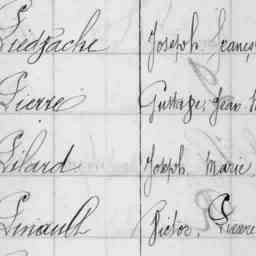 Piedzache Joseph Franç
Pierre Gustave, Jean
Pilard Joseph Marie
Pinault Victor, Pierre